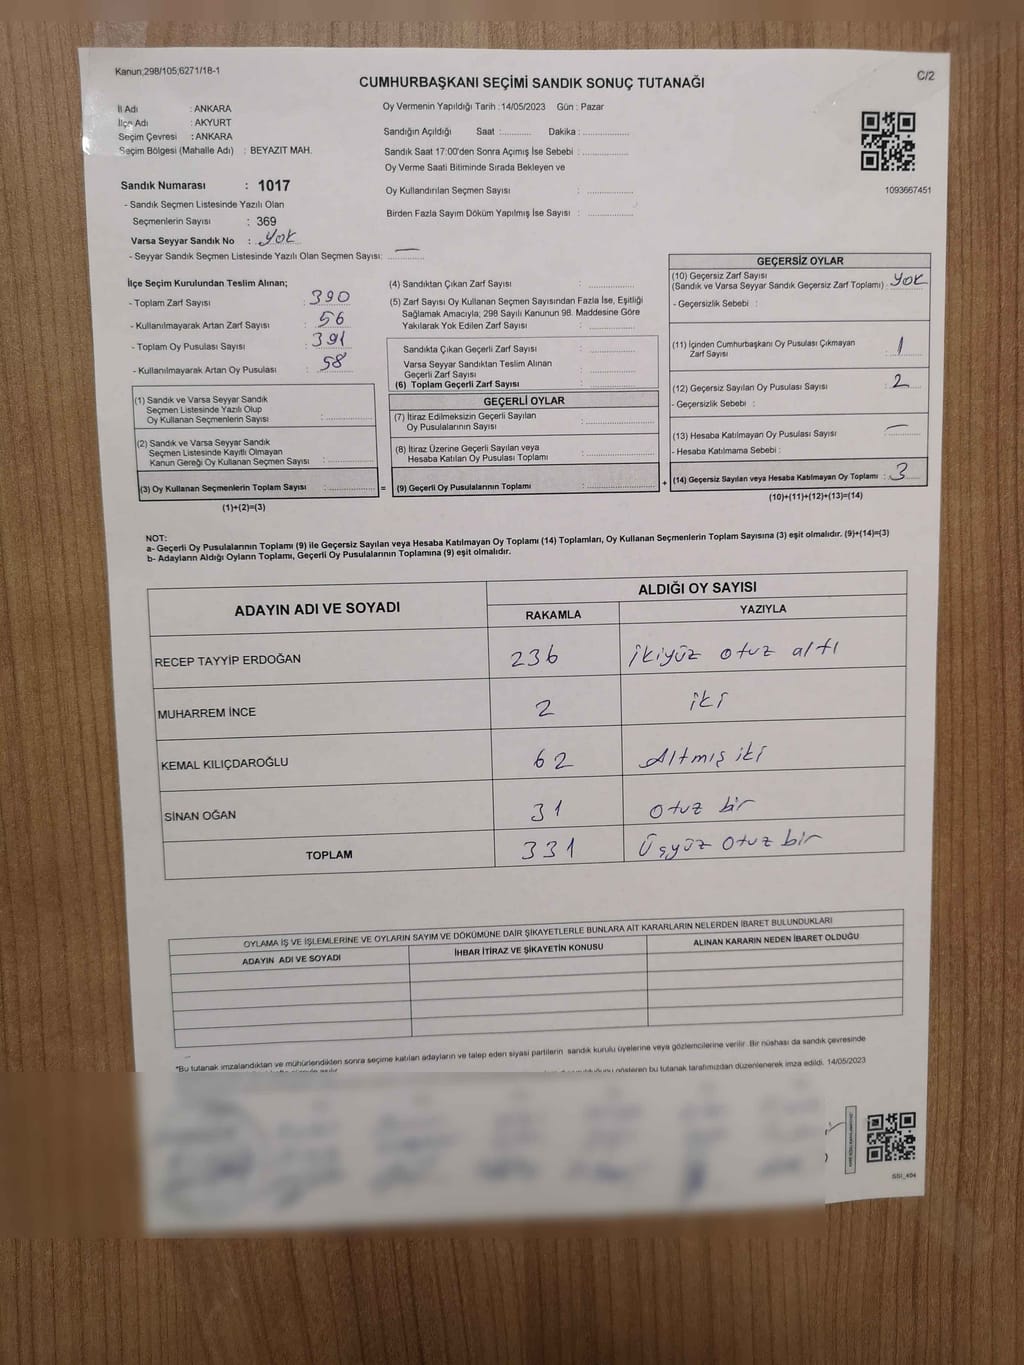 Kanun;298/105;6271/18-1
C/2
CUMHURBAŞKANI SEÇİMİ SANDIK SONUÇ TUTANAĞI
İl Adı : ANKARA
İlçe Adı : AKYURT
Seçim Çevresi : ANKARA
Seçim Bölgesi (Mahalle Adı) : BEYAZIT MAH.
Oy Vermenin Yapıldığı Tarih : 14/05/2023 Gün : Pazar
Sandığın Açıldığı Saat :........... Dakika :................
Sandık Saat 17:00'den Sonra Açımış İse Sebebi :................
Oy Verme Saati Bitiminde Sırada Bekleyen ve
Oy Kullandırılan Seçmen Sayısı :................
Birden Fazla Sayım Döküm Yapılmış İse Sayısı :................
1093667451
Sandık Numarası : 1017
- Sandık Seçmen Listesinde Yazılı Olan
Seçmenlerin Sayısı : 369
Varsa Seyyar Sandık No : Yok
- Seyyar Sandık Seçmen Listesinde Yazılı Olan Seçmen Sayısı: —
İlçe Seçim Kurulundan Teslim Alınan;
- Toplam Zarf Sayısı : 390
- Kullanılmayarak Artan Zarf Sayısı : 56
- Toplam Oy Pusulası Sayısı : 391
- Kullanılmayarak Artan Oy Pusulası : 58
(1) Sandık ve Varsa Seyyar Sandık
Seçmen Listesinde Yazılı Olup
Oy Kullanan Seçmenlerin Sayısı :................
(2) Sandık ve Varsa Seyyar Sandık
Seçmen Listesinde Kayıtlı Olmayan
Kanun Gereği Oy Kullanan Seçmen Sayısı :................
(3) Oy Kullanan Seçmenlerin Toplam Sayısı :................ =
(1)+(2)=(3)
(4) Sandıktan Çıkan Zarf Sayısı :................
(5) Zarf Sayısı Oy Kullanan Seçmen Sayısından Fazla İse, Eşitliği
Sağlamak Amacıyla; 298 Sayılı Kanunun 98. Maddesine Göre
Yakılarak Yok Edilen Zarf Sayısı :................
Sandıkta Çıkan Geçerli Zarf Sayısı :................
Varsa Seyyar Sandıktan Teslim Alınan
Geçerli Zarf Sayısı :................
(6) Toplam Geçerli Zarf Sayısı :................
GEÇERLİ OYLAR
(7) İtiraz Edilmeksizin Geçerli Sayılan
Oy Pusulalarının Sayısı :................
(8) İtiraz Üzerine Geçerli Sayılan veya
Hesaba Katılan Oy Pusulası Toplamı :................
(9) Geçerli Oy Pusulalarının Toplamı :................ +
GEÇERSİZ OYLAR
(10) Geçersiz Zarf Sayısı
(Sandık ve Varsa Seyyar Sandık Geçersiz Zarf Toplamı) : Yok
- Geçersizlik Sebebi :
(11) İçinden Cumhurbaşkanı Oy Pusulası Çıkmayan
Zarf Sayısı : 1
(12) Geçersiz Sayılan Oy Pusulası Sayısı : 2
- Geçersizlik Sebebi :
(13) Hesaba Katılmayan Oy Pusulası Sayısı : —
- Hesaba Katılmama Sebebi :
(14) Geçersiz Sayılan veya Hesaba Katılmayan Oy Toplamı : 3
(10)+(11)+(12)+(13)=(14)
NOT:
a- Geçerli Oy Pusulalarının Toplamı (9) ile Geçersiz Sayılan veya Hesaba Katılmayan Oy Toplamı (14) Toplamları, Oy Kullanan Seçmenlerin Toplam Sayısına (3) eşit olmalıdır. (9)+(14)=(3)
b- Adayların Aldığı Oyların Toplamı, Geçerli Oy Pusulalarının Toplamına (9) eşit olmalıdır.
ADAYIN ADI VE SOYADI ALDIĞI OY SAYISI
RAKAMLA YAZIYLA
RECEP TAYYİP ERDOĞAN 236 İkiyüz otuz altı
MUHARREM İNCE 2 iki
KEMAL KILIÇDAROĞLU 62 Altmış iki
SİNAN OĞAN 31 otuz bir
TOPLAM 331 Üçyüz otuz bir
OYLAMA İŞ VE İŞLEMLERİNE VE OYLARIN SAYIM VE DÖKÜMÜNE DAİR ŞİKAYETLERLE BUNLARA AİT KARARLARIN NELERDEN İBARET BULUNDUKLARI
ADAYIN ADI VE SOYADI İHBAR İTİRAZ VE ŞİKAYETİN KONUSU ALINAN KARARIN NEDEN İBARET OLDUĞU
*Bu tutanak imzalandıktan ve mühürlendikten sonra seçime katılan adayların ve talep eden siyasi partilerin sandık kurulu üyelerine veya gözlemcilerine verilir. Bir nüshası da sandık çevresinde
gösteren bu tutanak tarafımızdan düzenlenerek imza edildi. 14/05/2023